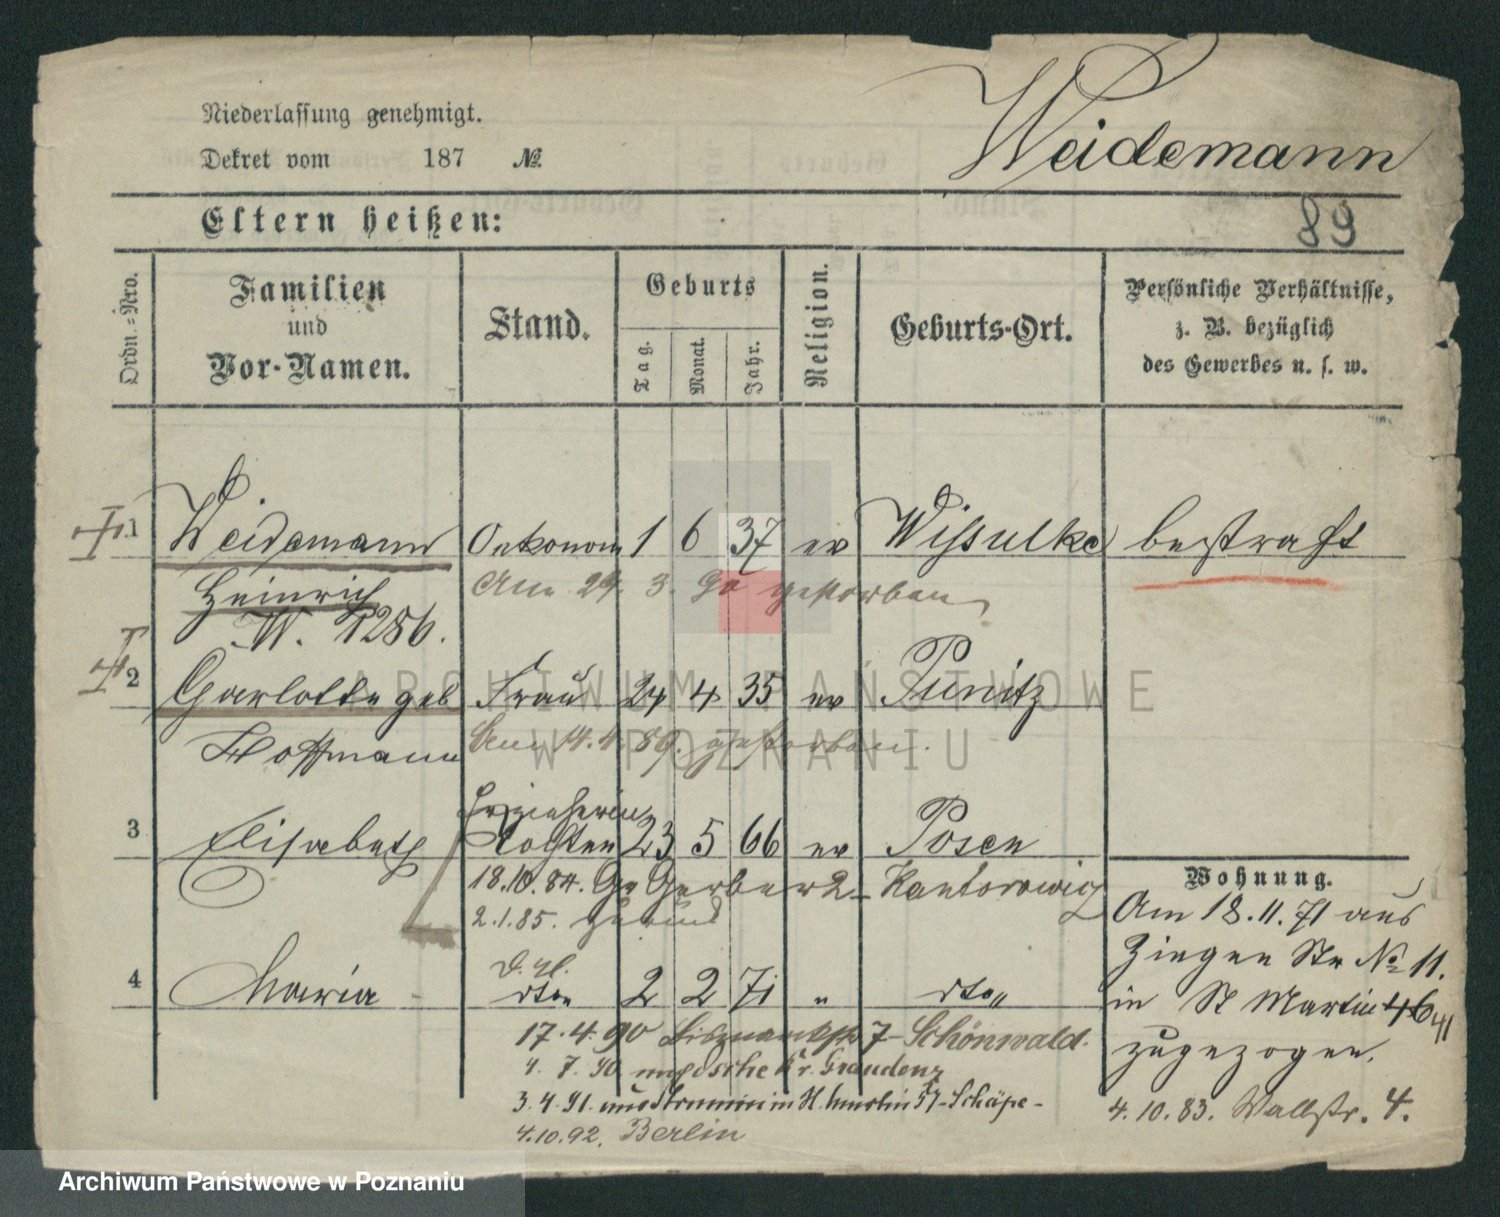 Niederlassung genehmigt.
Dekret vom 187 №
Weidemann
Eltern heißen:
89
Ordn.-Nro.
Familien
und
Vor-Namen.
Stand.
Geburts
Tag.
Monat.
Jahr.
Religion.
Geburts-Ort.
Persönliche Verhältnisse,
z. B. bezüglich
des Gewerbes u. s. w.
1 Weidemann Oekonom 1 6 37 ev Wissulke bestraft
Heinrich Am 29. 3. 90 gestorben
W. 1286.
2 Charlotte geb Frau 24 4 35 ev Punitz
Hoffmann Am 14. 4. 89. gestorben.
Erzieherin
3 Elisabeth Tochter 23 5 66 ev Posen
18.10.84. Gr Gerber 2 - Kantorowicz
2.1.85.
4 Maria dto 2 2 71 " dto "
17. 4. 90 Bismarckstr 7 - Schönwald.
4. 7. 90 Kr. Graudenz
3. 4. 91. aus in St. Martin - Schäpe -
4.10.92. Berlin
Wohnung.
Am 18.11.71 aus
Ziegen Str № 11.
in St Martin 46
41
zugezogen.
4.10.83. Wallstr. 4.
ARCHIWUM PAŃSTWOWE
W POZNANIU
Archiwum Państwowe w Poznaniu